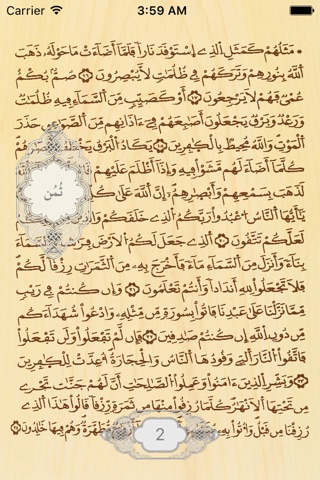 Carrier 3:59 AM
مَثَلُهُمْ كَمَثَلِ اِ۬لذِے اِ۪سْتَوْقَدَ نَاراٗ فَلَمَّآ أَضَآءَتْ مَا حَوْلَهُۥ ذَهَبَ
اَ۬للَّهُ بِنُورِهِمْ وَتَرَكَهُمْ فِے ظُلُمَٰتٖ لَّا يُبْصِرُونَ صُمُّۢ بُكْمٌ
عُمْيٞ فَهُمْ لَا يَرْجِعُونَ أَوْ كَصَيِّبٖ مِّنَ اَ۬لسَّمَآءِ فِيهِ ظُلُمَٰتٞ
وَرَعْدٞ وَبَرْقٞ يَجْعَلُونَ أَصَٰبِعَهُمْ فِےٓ ءَاذَانِهِم مِّنَ اَ۬لصَّوَٰعِقِ حَذَرَ
اَ۬لْمَوْتِ وَاللَّهُ مُحِيطُۢ بِالْكَٰفِرِينَ يَكَادُ اُ۬لْبَرْقُ يَخْطَفُ أَبْصَٰرَهُمْ
كُلَّمَآ أَضَآءَ لَهُم مَّشَوْاْ فِيهِ وَإِذَآ أَظْلَمَ عَلَيْهِمْ
لَذَهَبَ بِسَمْعِهِمْ وَأَبْصٰ۪رِهِمْۖ إِنَّ اَ۬للَّهَ عَلَىٰ
يَٰٓأَيُّهَا اَ۬لنَّاسُ اُ۟عْبُدُواْ رَبَّكُمُ اُ۬لذِے خَلَقَكُمْ
لَعَلَّكُمْ تَتَّقُونَ اَ۬لذِے جَعَلَ لَكُمُ اُ۬لَارْضَ
بِنَآءٗ وَأَنزَلَ مِنَ اَ۬لسَّمَآءِ مَآءٗ فَأَخْرَجَ بِهِۦ مِنَ اَ۬لثَّمَرَٰتِ رِزْقاٗ لَّكُمْ
فَلَا تَجْعَلُواْ لِلهِ أَندَاداٗ وَأَنتُمْ تَعْلَمُونَ وَإِن كُنتُمْ فِے رَيْبٖ
مِّمَّا نَزَّلْنَا عَلَىٰ عَبْدِنَا فَاتُواْ بِسُورَةٖ مِّن مِّثْلِهِۦ وَادْعُواْ شُهَدَآءَكُم
مِّن دُونِ اِ۬للَّهِ إِن كُنتُمْ صَٰدِقِينَ فَإِن لَّمْ تَفْعَلُواْ وَلَن تَفْعَلُواْ
فَاتَّقُواْ اُ۬لنَّارَ اَ۬لتِے وَقُودُهَا اَ۬لنَّاسُ وَالْحِجَارَةُ أُعِدَّتْ لِلْكٰ۪فِرِينَ
وَبَشِّرِ اِ۬لذِينَ ءَامَنُواْ وَعَمِلُواْ اُ۬لصَّٰلِحَٰتِ أَنَّ لَهُمْ جَنَّٰتٖ تَجْرِے
مِن تَحْتِهَا اَ۬لَانْهَٰرُ كُلَّمَا رُزِقُواْ مِنْهَا مِن ثَمَرَةٖ رِّزْقاٗ قَالُواْ هَٰذَا اَ۬لذِے
رُزِقْنَا مِن قَبْلُ وَأُتُواْ بِهِۦ مُّطَهَّرَةٞ وَهُمْ فِيهَا خَٰلِدُونَ
ثُمُن
2